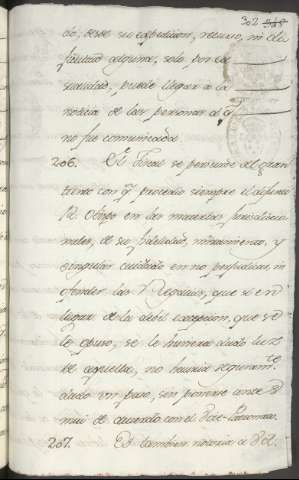 302
do, desde su expedicion, recurso, ni di
ficultad alguna, solo por ca
sualidad, puede llegar a la
noticia de las personas a q.
no fue comunicada.
206. El Fiscal se persuade al gran
tiento con q. procedio siempre el difunto
R. Obispo en las materias jurisdiccio
nales, de su fidelidad, miramiento, y
singular cuidado en no perjudicar, ni
ofender las Regalias, que si en
lugar de la debil excepcion, que se
le opuso, se le huviera dado luz
de aquellas, no havria seguram.te
dado un paso, sin ponerse antes
mui de acuerdo con el
207. Es tambien notorio a